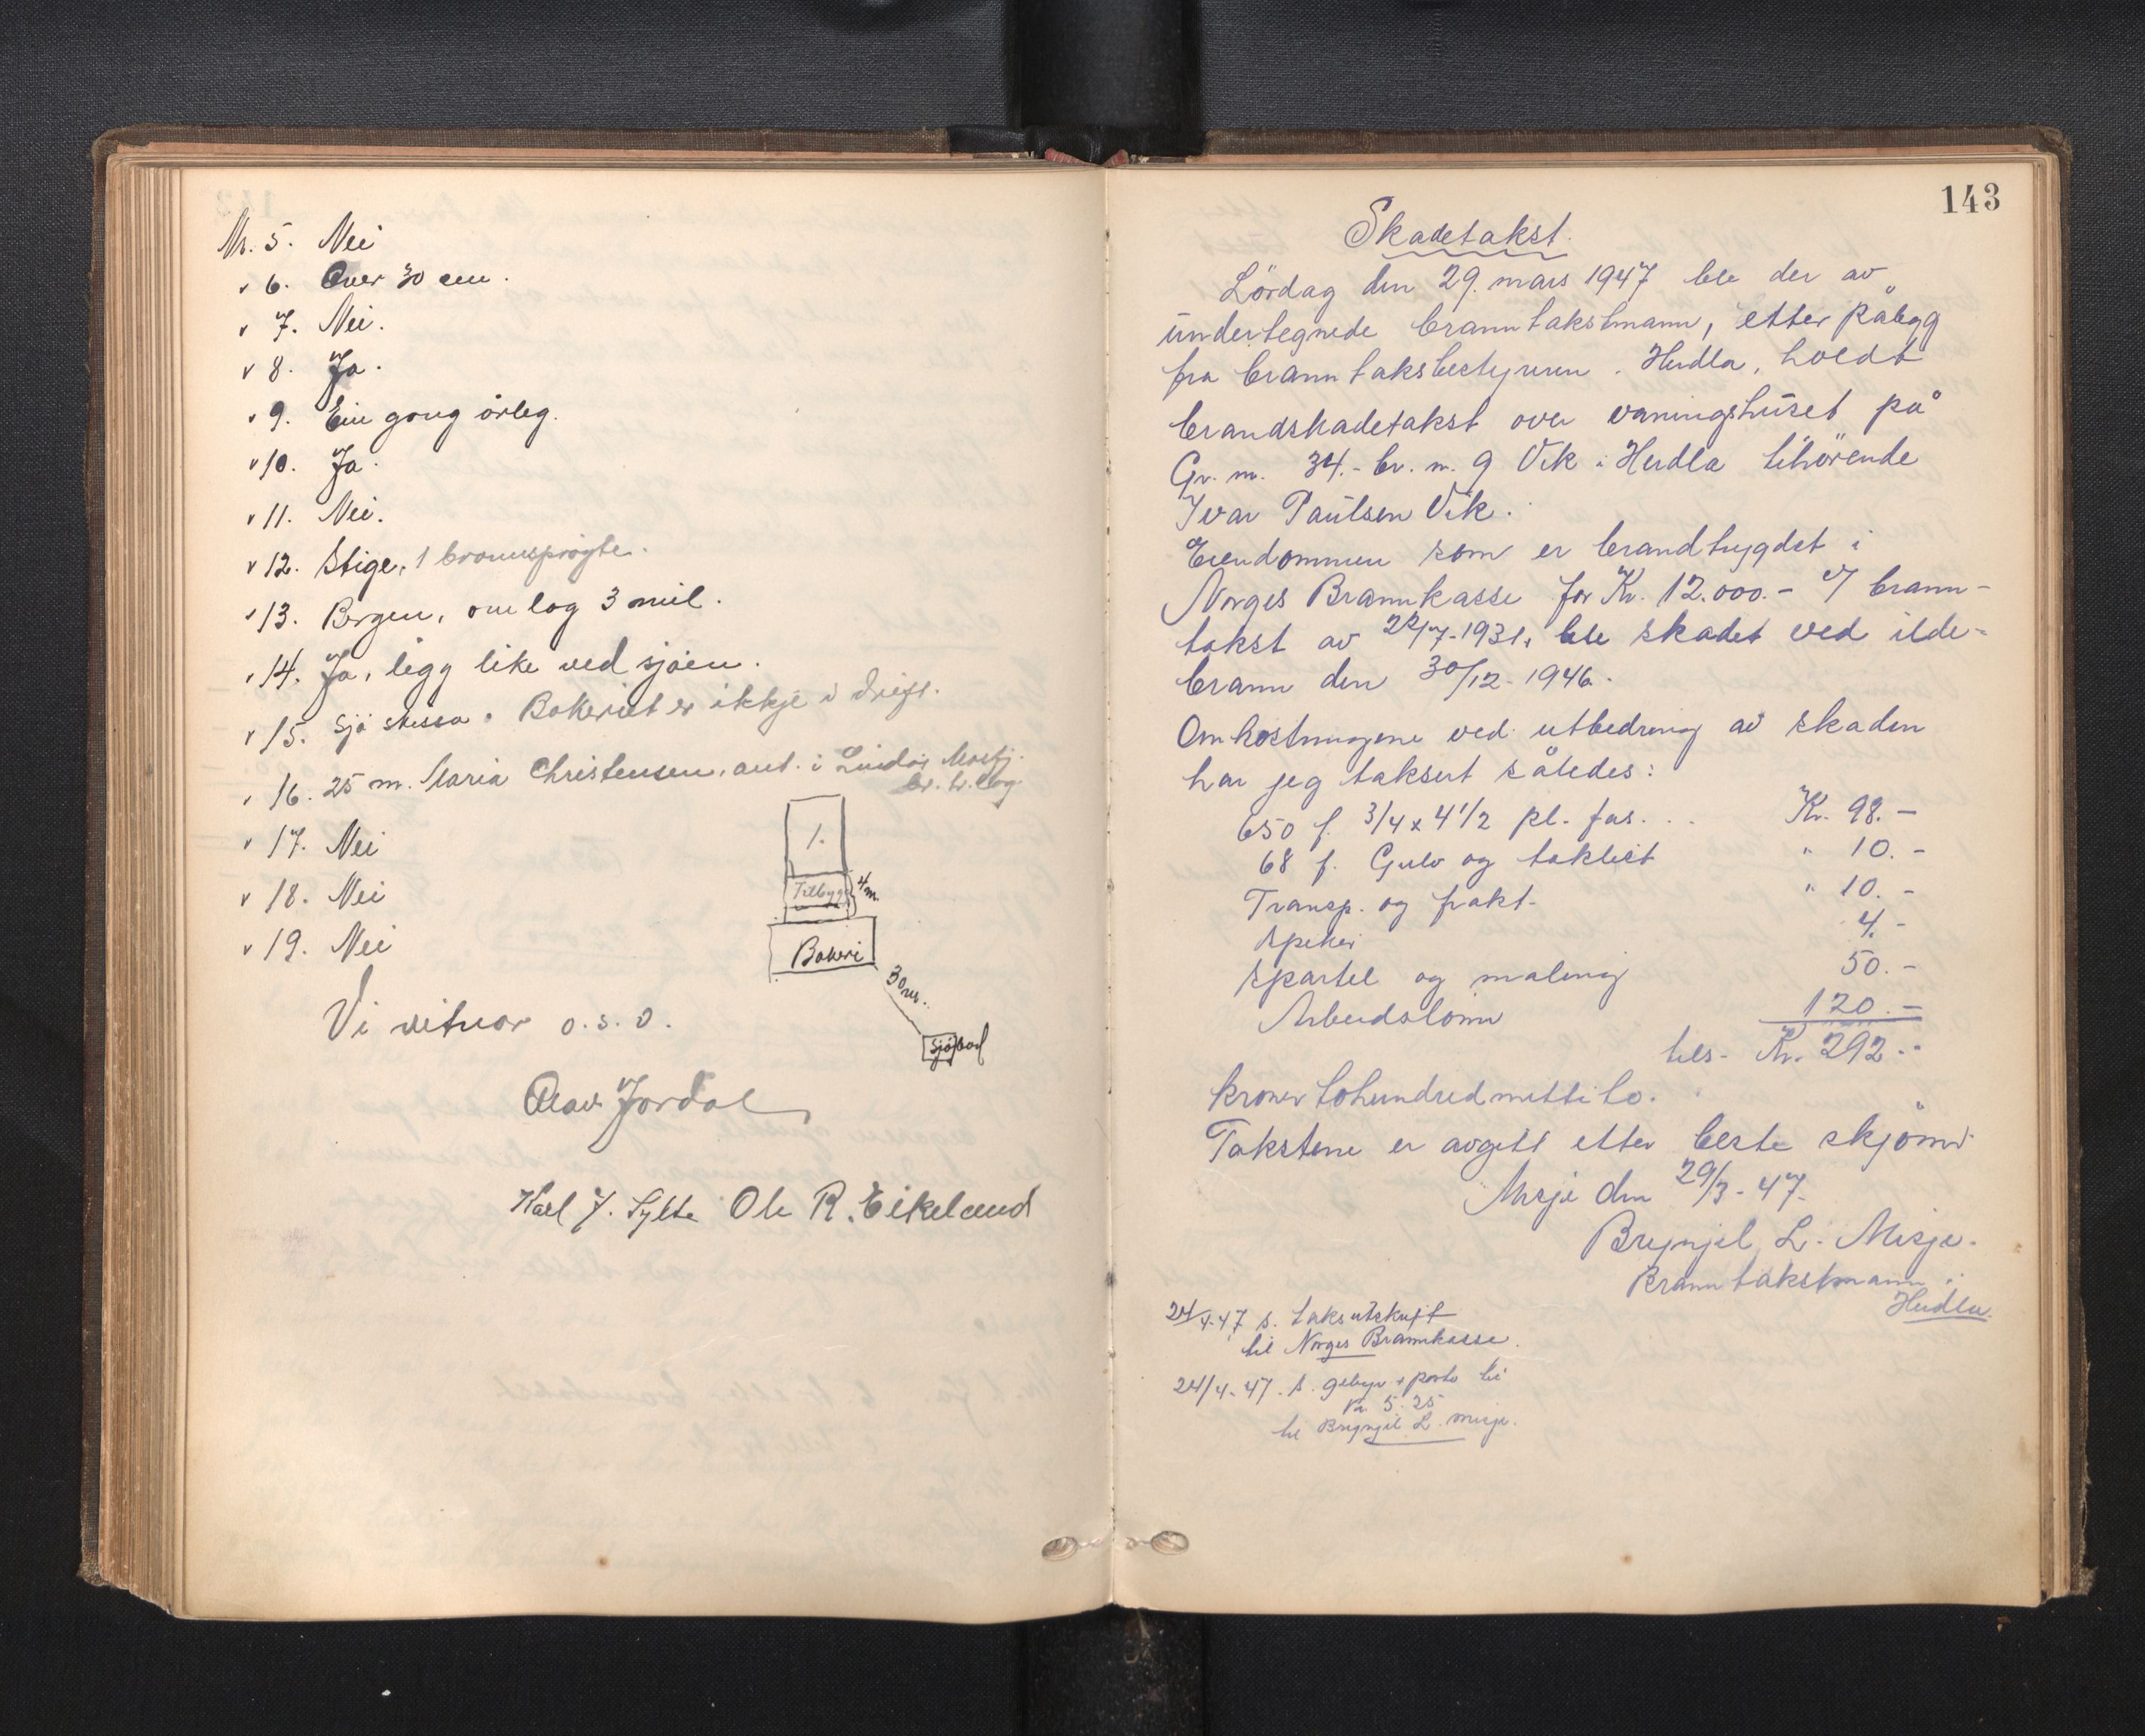 Nr. 5. Nei
" 6. Over 30 cm.
" 7. Nei.
" 8. Ja.
" 9. Ein gong årleg.
" 10. Ja.
" 11. Nei.
" 12. Stige, 1 brannsprøyte.
" 13. Bergen, om lag 3 mil.
" 14. Ja, ligg like ved sjøen.
" 15. Sjå skissa. Bakeriet er ikkje i drift.
" 16. 25 m. Maria Christensen, ant. i Lindås Mostj.
br. tr. lag
" 17. Nei
" 18. Nei
" 19. Nei
1.
Tilbygg
4 m.
Bakeri
30 m.
Sjøbod
Vi vitnar o.s.v.
Olav Jordal
Karl J. Sylta Ole R. Eikeland
143
Skadetakst.
Lördag den 29. mars 1947 ble der av
undertegnede branntakstmann, etter pålegg
fra branntakstbestyreren i Herdla, holdt
brandskadetakst over våningshuset på
Gr. nr. 34.- br. nr. 9 Vik i Herdla tilhörende
Ivar Paulsen Vik.
Eiendommen som er brandtrygdet i
Norges Brannkasse for Kr. 12.000.- i/ brann-
takst av 22/7-1931, ble skadet ved ilde-
brann den 30/12-1946.
Omkostningene ved utbedring av skaden
har jeg taksert således:
650 f. 3/4 x 4 1/2 pl. fas. . . Kr. 98.-
68 f. Gulv og taklist " 10.-
Transp. og frakt- " 10.-
Spiker 4.-
Spartel og maling 50.-
Arbeidslönn 120.-
tils- Kr. 292.-
kroner tohundrednittito.
Takstene er avgitt etter beste skjönn
Misje den 29/3-47.
Brynjel L. Misje.
Branntakstmann i
Herdla.
24/4-47 s. takstutskrift
til Norges Brannkasse.
24/4-47. s. gebyr + porto til
kr 5.25
til Brynjel L. Misje.